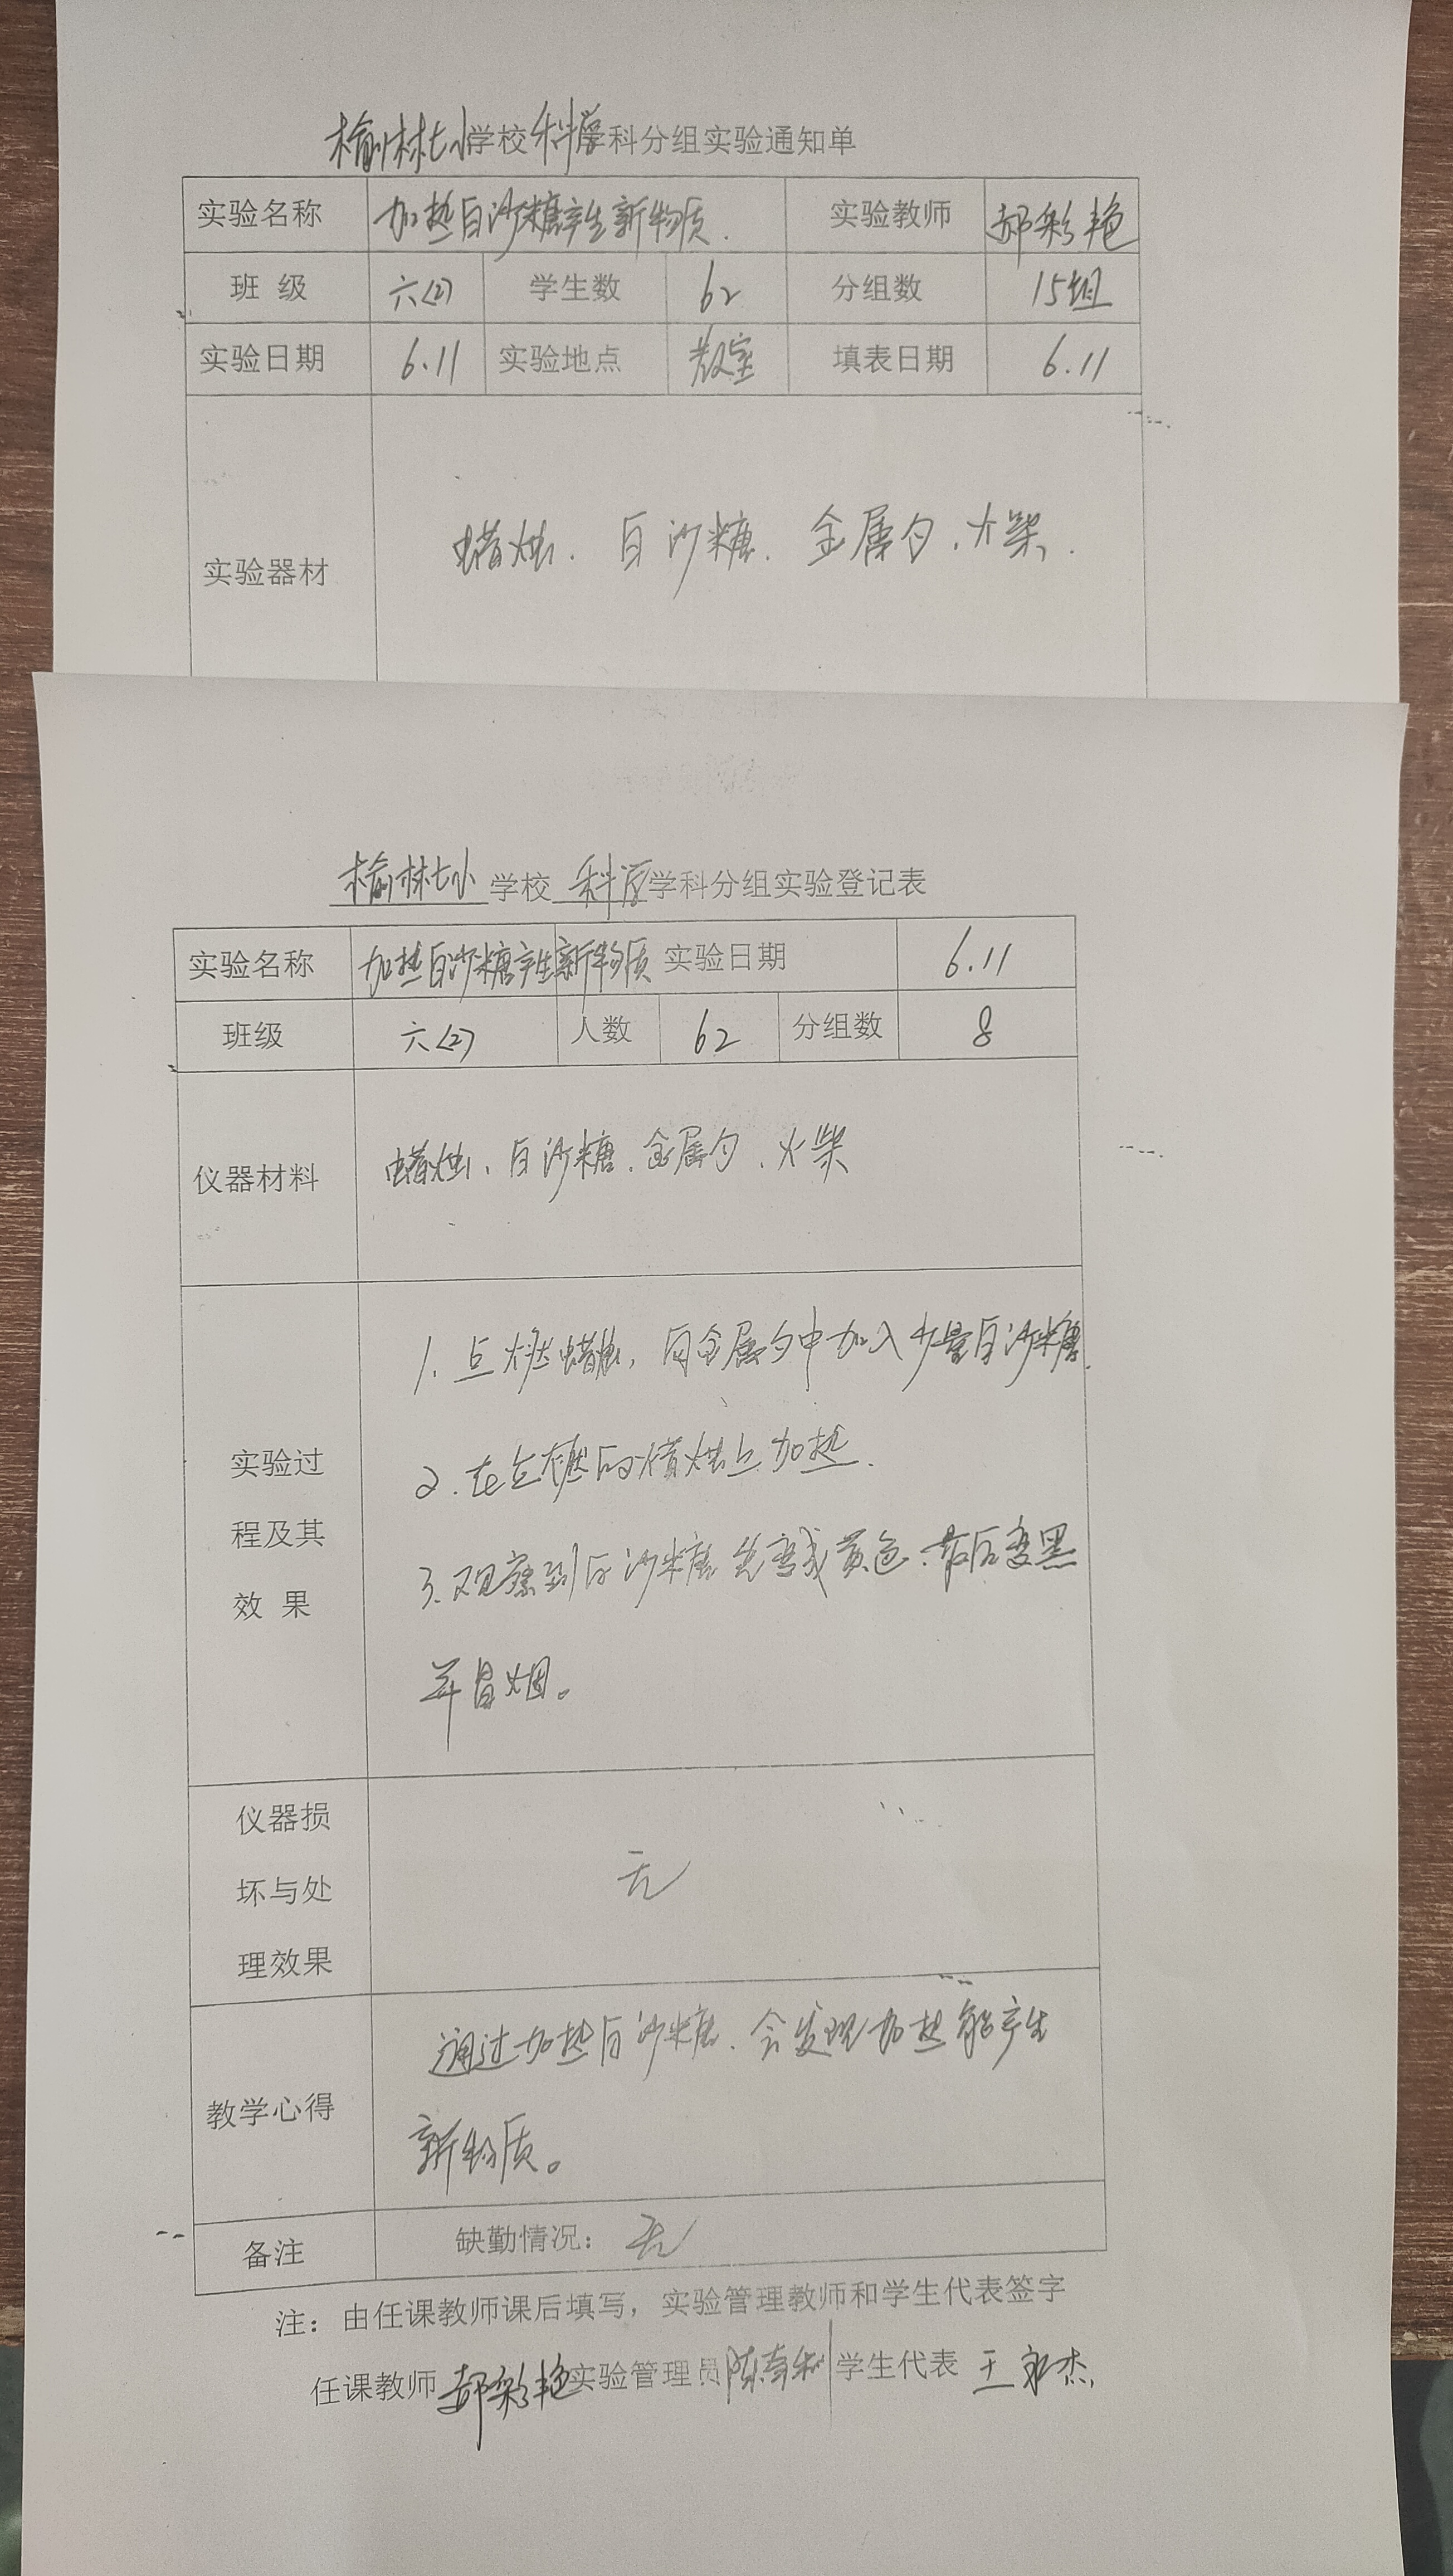 榆林七小学校科学学科分组实验通知单
实验名称 加热白沙糖产生新物质. 实验教师 郝彩艳
班 级 六(2) 学生数 62 分组数 15组
实验日期 6.11 实验地点 教室 填表日期 6.11
实验器材 蜡烛. 白沙糖. 金属勺、火柴.
榆林七小 学校 科学 学科分组实验登记表
实验名称 加热白沙糖产生新物质 实验日期 6.11
班级 六(2) 人数 62 分组数 8
仪器材料 蜡烛、白沙糖. 金属勺、火柴
实验过
程及其
效 果
1. 点燃蜡烛, 向金属勺中加入少量白沙糖.
2. 在点燃的蜡烛上加热.
3. 观察到白沙糖先变成黄色、最后变黑
并冒烟。
仪器损
坏与处
理效果
无
教学心得
通过加热白沙糖、会发现加热能产生
新物质。
备注 缺勤情况: 无
注：由任课教师课后填写，实验管理教师和学生代表签字
任课教师 郝彩艳 实验管理员 学生代表 王永杰